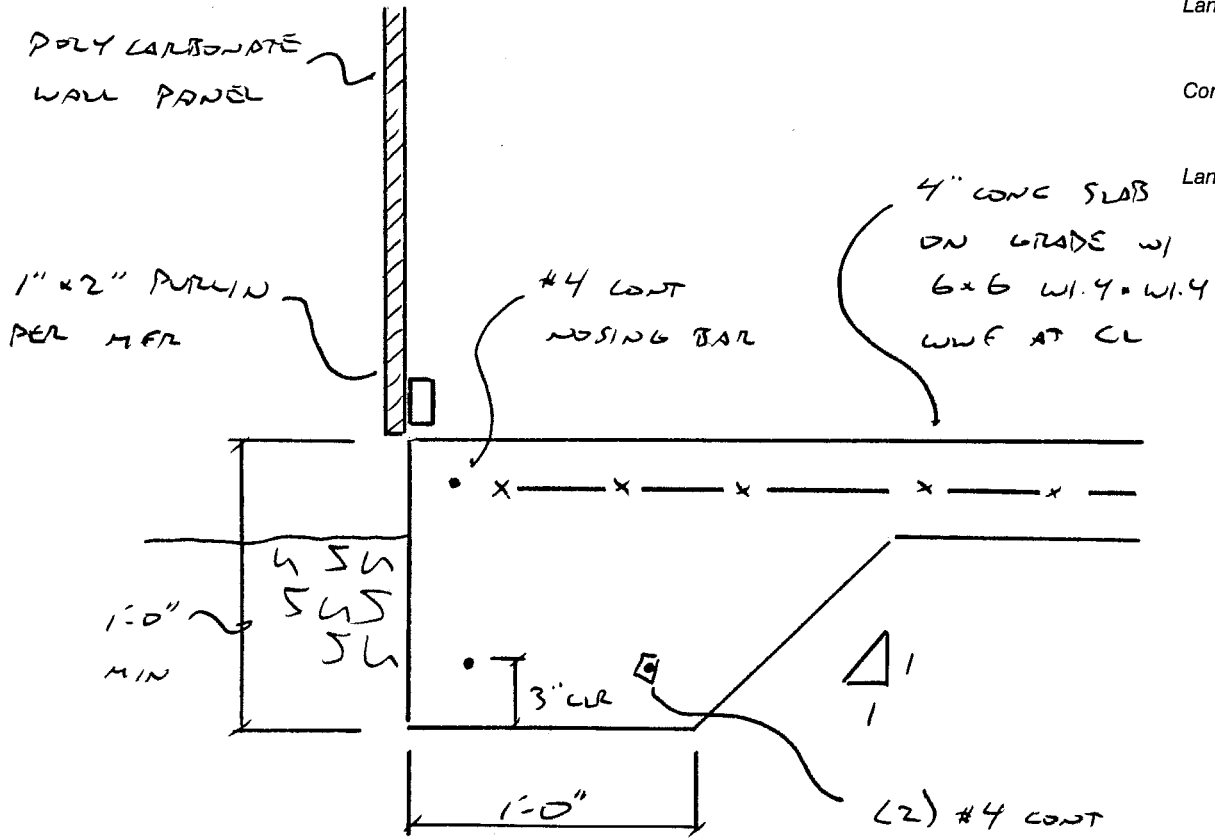 POLY CARBONATE
WALL PANEL
1" x 2" PURLIN
PER MFR
#4 CONT
NOSING BAR
4" CONC SLAB
ON GRADE W/
6x6 W1.4 x W1.4
WWF AT CL
1'-0"
MIN
3" CLR
1
1
1'-0"
(2) #4 CONT
Lan
Con
Lan